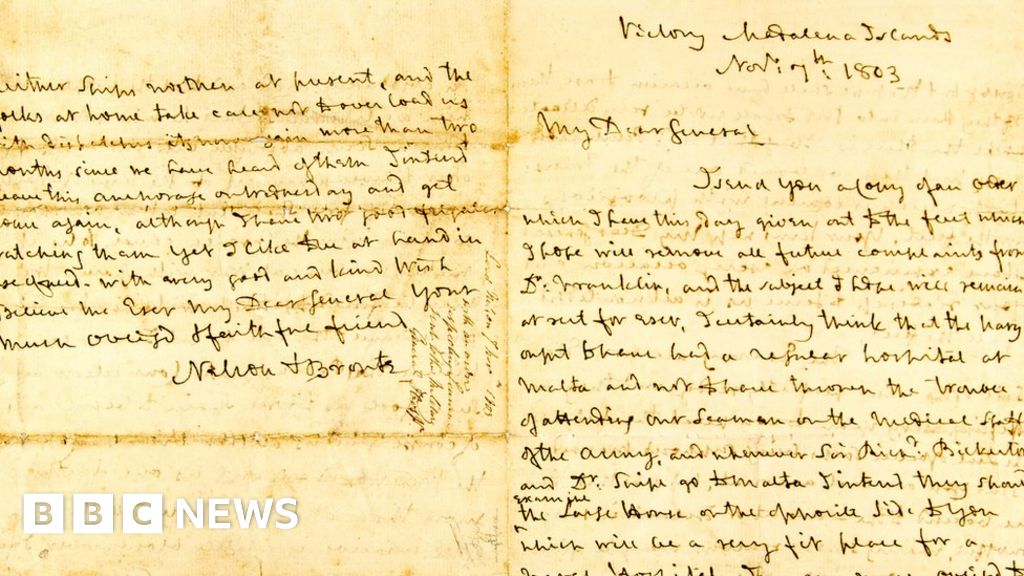 Victory Madalena Islands
Novr. 7th: 1803
My Dear General
I send you a Copy of an order
which I have this day given out to the fleet which
I hope will remove all future complaints from
Dr. Franklin, and the subject I hope will remain
at rest for ever, I certainly think that the Navy
ought to have had a regular hospital at
Malta and not to have thrown the trouble
of attending our Seamen on the Medical Staff
of the Army, and whenever Sir Richd. Bickerton
and Dr. Snipe go to Malta I intend they should
examine
the Large House on the opposite side to you
which will be a very fit place for a
Hospital
either Ships or them at present, and the
folks at home take care not to over load us
with dispatches its now again more than two
months since we have heard of them I intend
leave this anchorage on Wednesday and get
again, although I have two good frigates
watching them yet I like to be at hand in
with every good and kind Wish
Believe me Ever My Dear General Your
much obliged & faithful friend
Nelson & Bronte
Lord Nelson 7 Novr. 1803
with an order
BBC NEWS